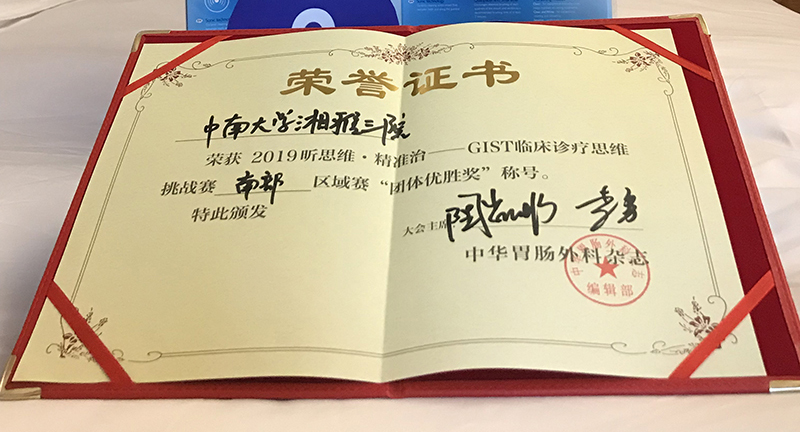 荣誉证书
中南大学湘雅三院
荣获 2019昕思维·精准治——GIST临床诊疗思维
挑战赛 南部 区域赛“团体优胜奖”称号。
特此颁发
大会主席
中华胃肠外科杂志
编辑部